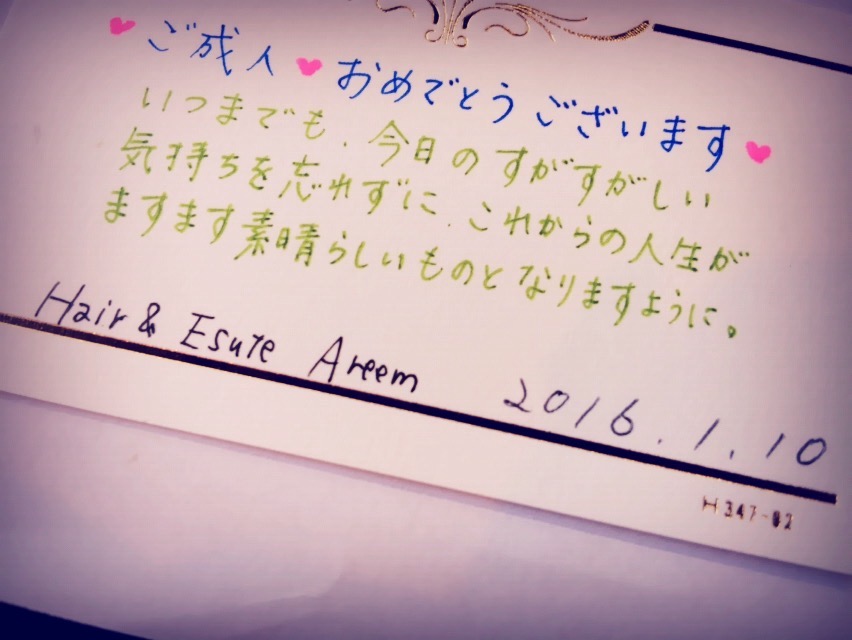 ♥ご成人♥おめでとうございます♥
いつまでも、今日のすがすがしい
気持ちを忘れずに、これからの人生が
ますます素晴らしいものとなりますように。
Hair & Esute Areem 2016.1.10
H347-02